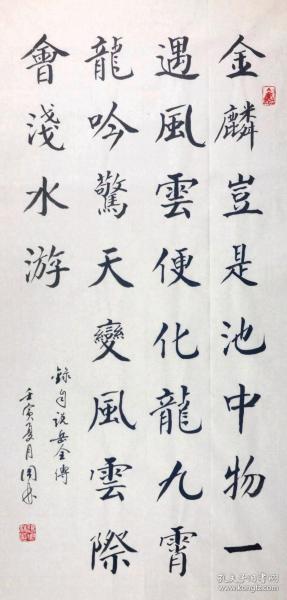 金麟豈是池中物一
遇風雲便化龍九霄
龍吟驚天變風雲際
會淺水游
錄自説岳全傳
壬寅夏月周
孔夫子旧书网